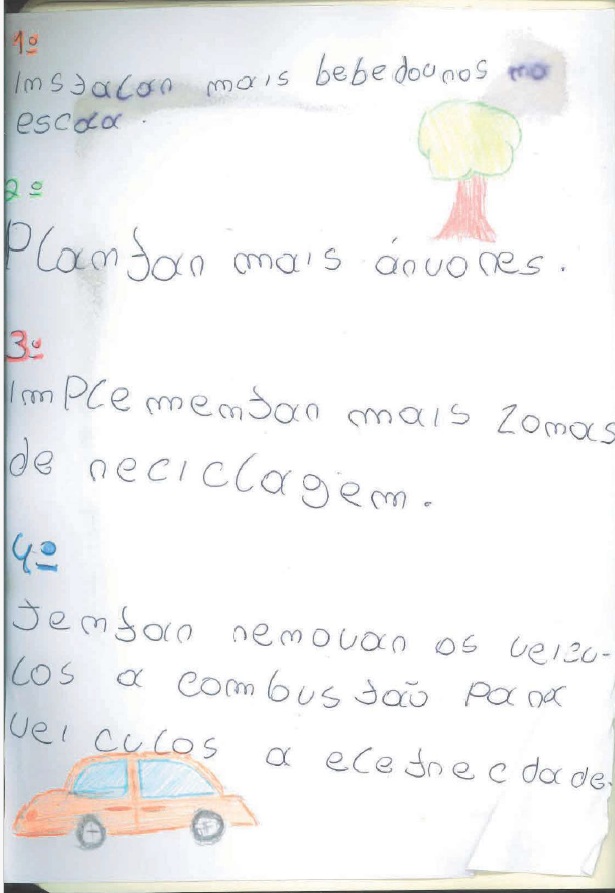 1º
Instalar mais bebedouros na
escola.
2º
Plantar mais árvores.
3º
Implementar mais zonas
de reciclagem.
4º
Tentar removar os veícu-
los a combustão para
veículos a eletrecdade.